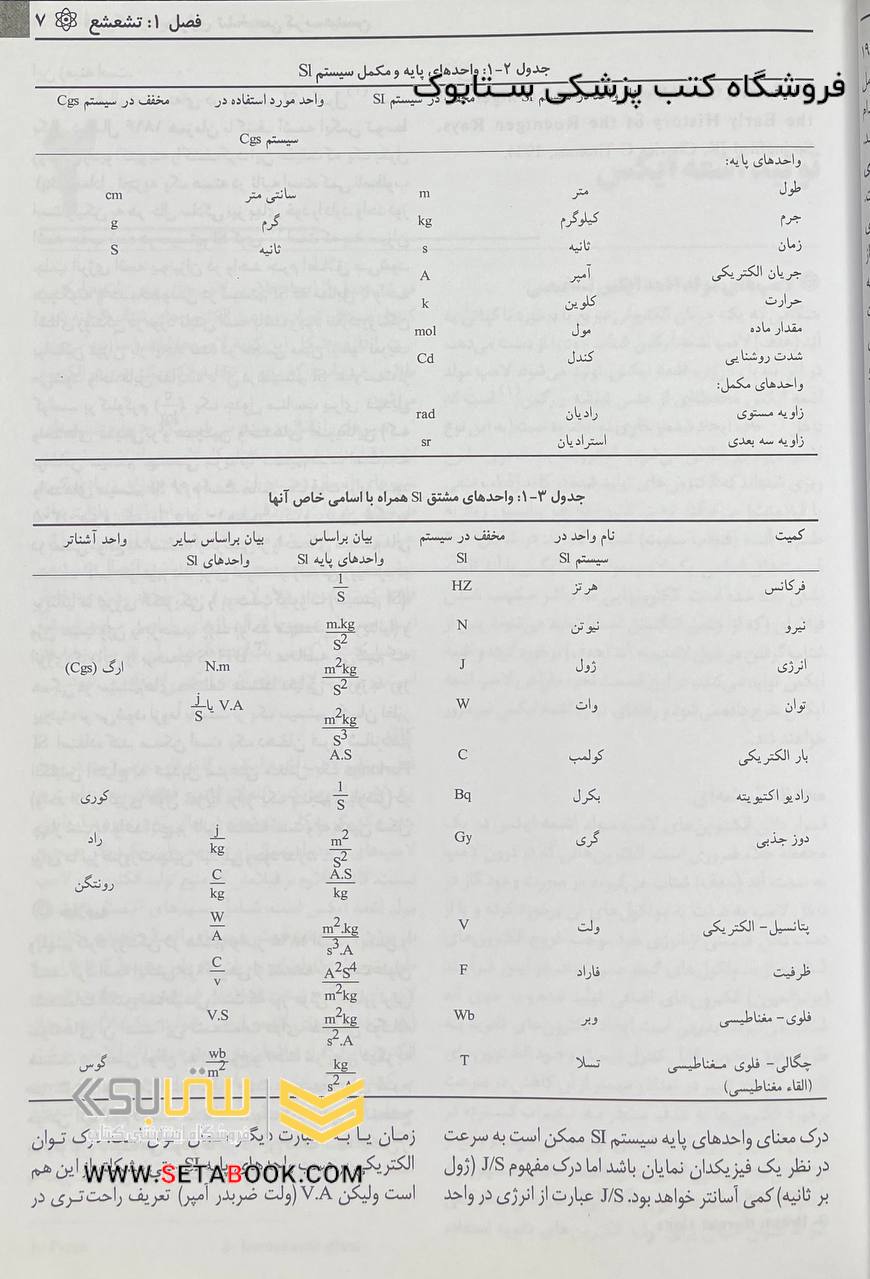 فصل ۱: تشعشع ۷
فروشگاه کتب پزشکی ستابوک
جدول ۲-۱: واحدهای پایه و مکمل سیستم SI
واحد مورد استفاده در مخفف در سیستم Cgs
سیستم Cgs
واحدهای پایه:
طول متر m سانتی متر cm
جرم کیلوگرم kg گرم g
زمان ثانیه s ثانیه S
جریان الکتریکی آمپر A
حرارت کلوین k
مقدار ماده مول mol
شدت روشنایی کندل Cd
واحدهای مکمل:
زاویه مستوی رادیان rad
زاویه سه بعدی استرادیان sr
جدول ۳-۱: واحدهای مشتق SI همراه با اسامی خاص آنها
کمیت نام واحد در مخفف در سیستم بیان براساس بیان براساس سایر واحد آشناتر
سیستم SI SI واحدهای پایه SI واحدهای SI
فرکانس هرتز HZ 1/S
نیرو نیوتن N m.kg/S²
انرژی ژول J m²kg/S² N.m ارگ (Cgs)
توان وات W m²kg/S³ V.A یا j/S
بار الکتریکی کولمب C A.S
رادیو اکتیویته بکرل Bq 1/S کوری
دوز جذبی گری Gy m²/S² j/kg راد
A.S/kg C/kg رونتگن
پتانسیل- الکتریکی ولت V m².kg/s³.A W/A
ظرفیت فاراد F A²S⁴/m²kg C/v
فلوی- مغناطیسی وبر Wb m²kg/s².A V.S
چگالی- فلوی مغناطیسی تسلا T kg/s².A wb/m² گوس
(القاء مغناطیسی)
درک معنای واحدهای پایه سیستم SI ممکن است به سرعت
در نظر یک فیزیکدان نمایان باشد اما درک مفهوم J/S (ژول
بر ثانیه) کمی آسانتر خواهد بود. J/S عبارت از انرژی در واحد
زمان یا به عبارت دیگر توان
الکتریکی از این هم
است ولیکن V.A (ولت ضربدر آمپر) تعریف راحت‌تری در
ستابوک
فروشگاه اینترنتی کتاب
WWW.SETABOOK.COM